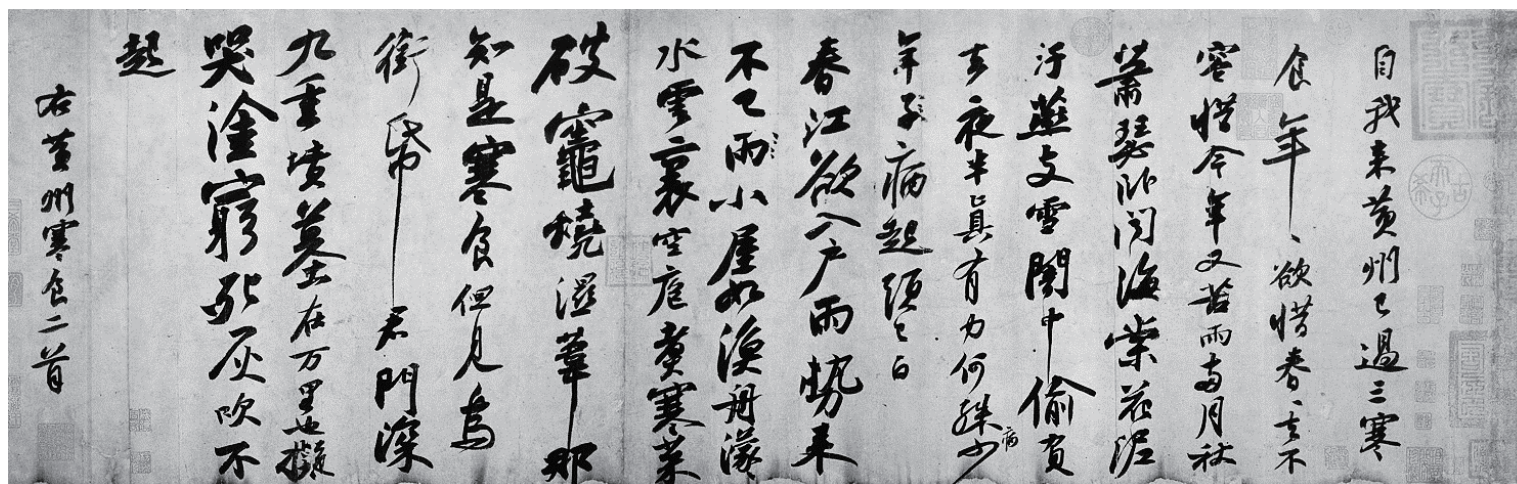 自我來黃州已過三寒
食年、欲惜春、去不
容惜今年又苦雨兩月秋
蕭瑟臥聞海棠花泥
汙燕支雪闇中偷負
去夜半真有力何殊少
年子病起頭已白
春江欲入戶雨勢來
不已雨小屋如漁舟濛
水雲裏空庖煮寒菜
破竈燒濕葦那
知是寒食但見烏
銜帋君門深
九重墳墓在万里也擬
哭塗窮死灰吹不
起
右黃州寒食二首